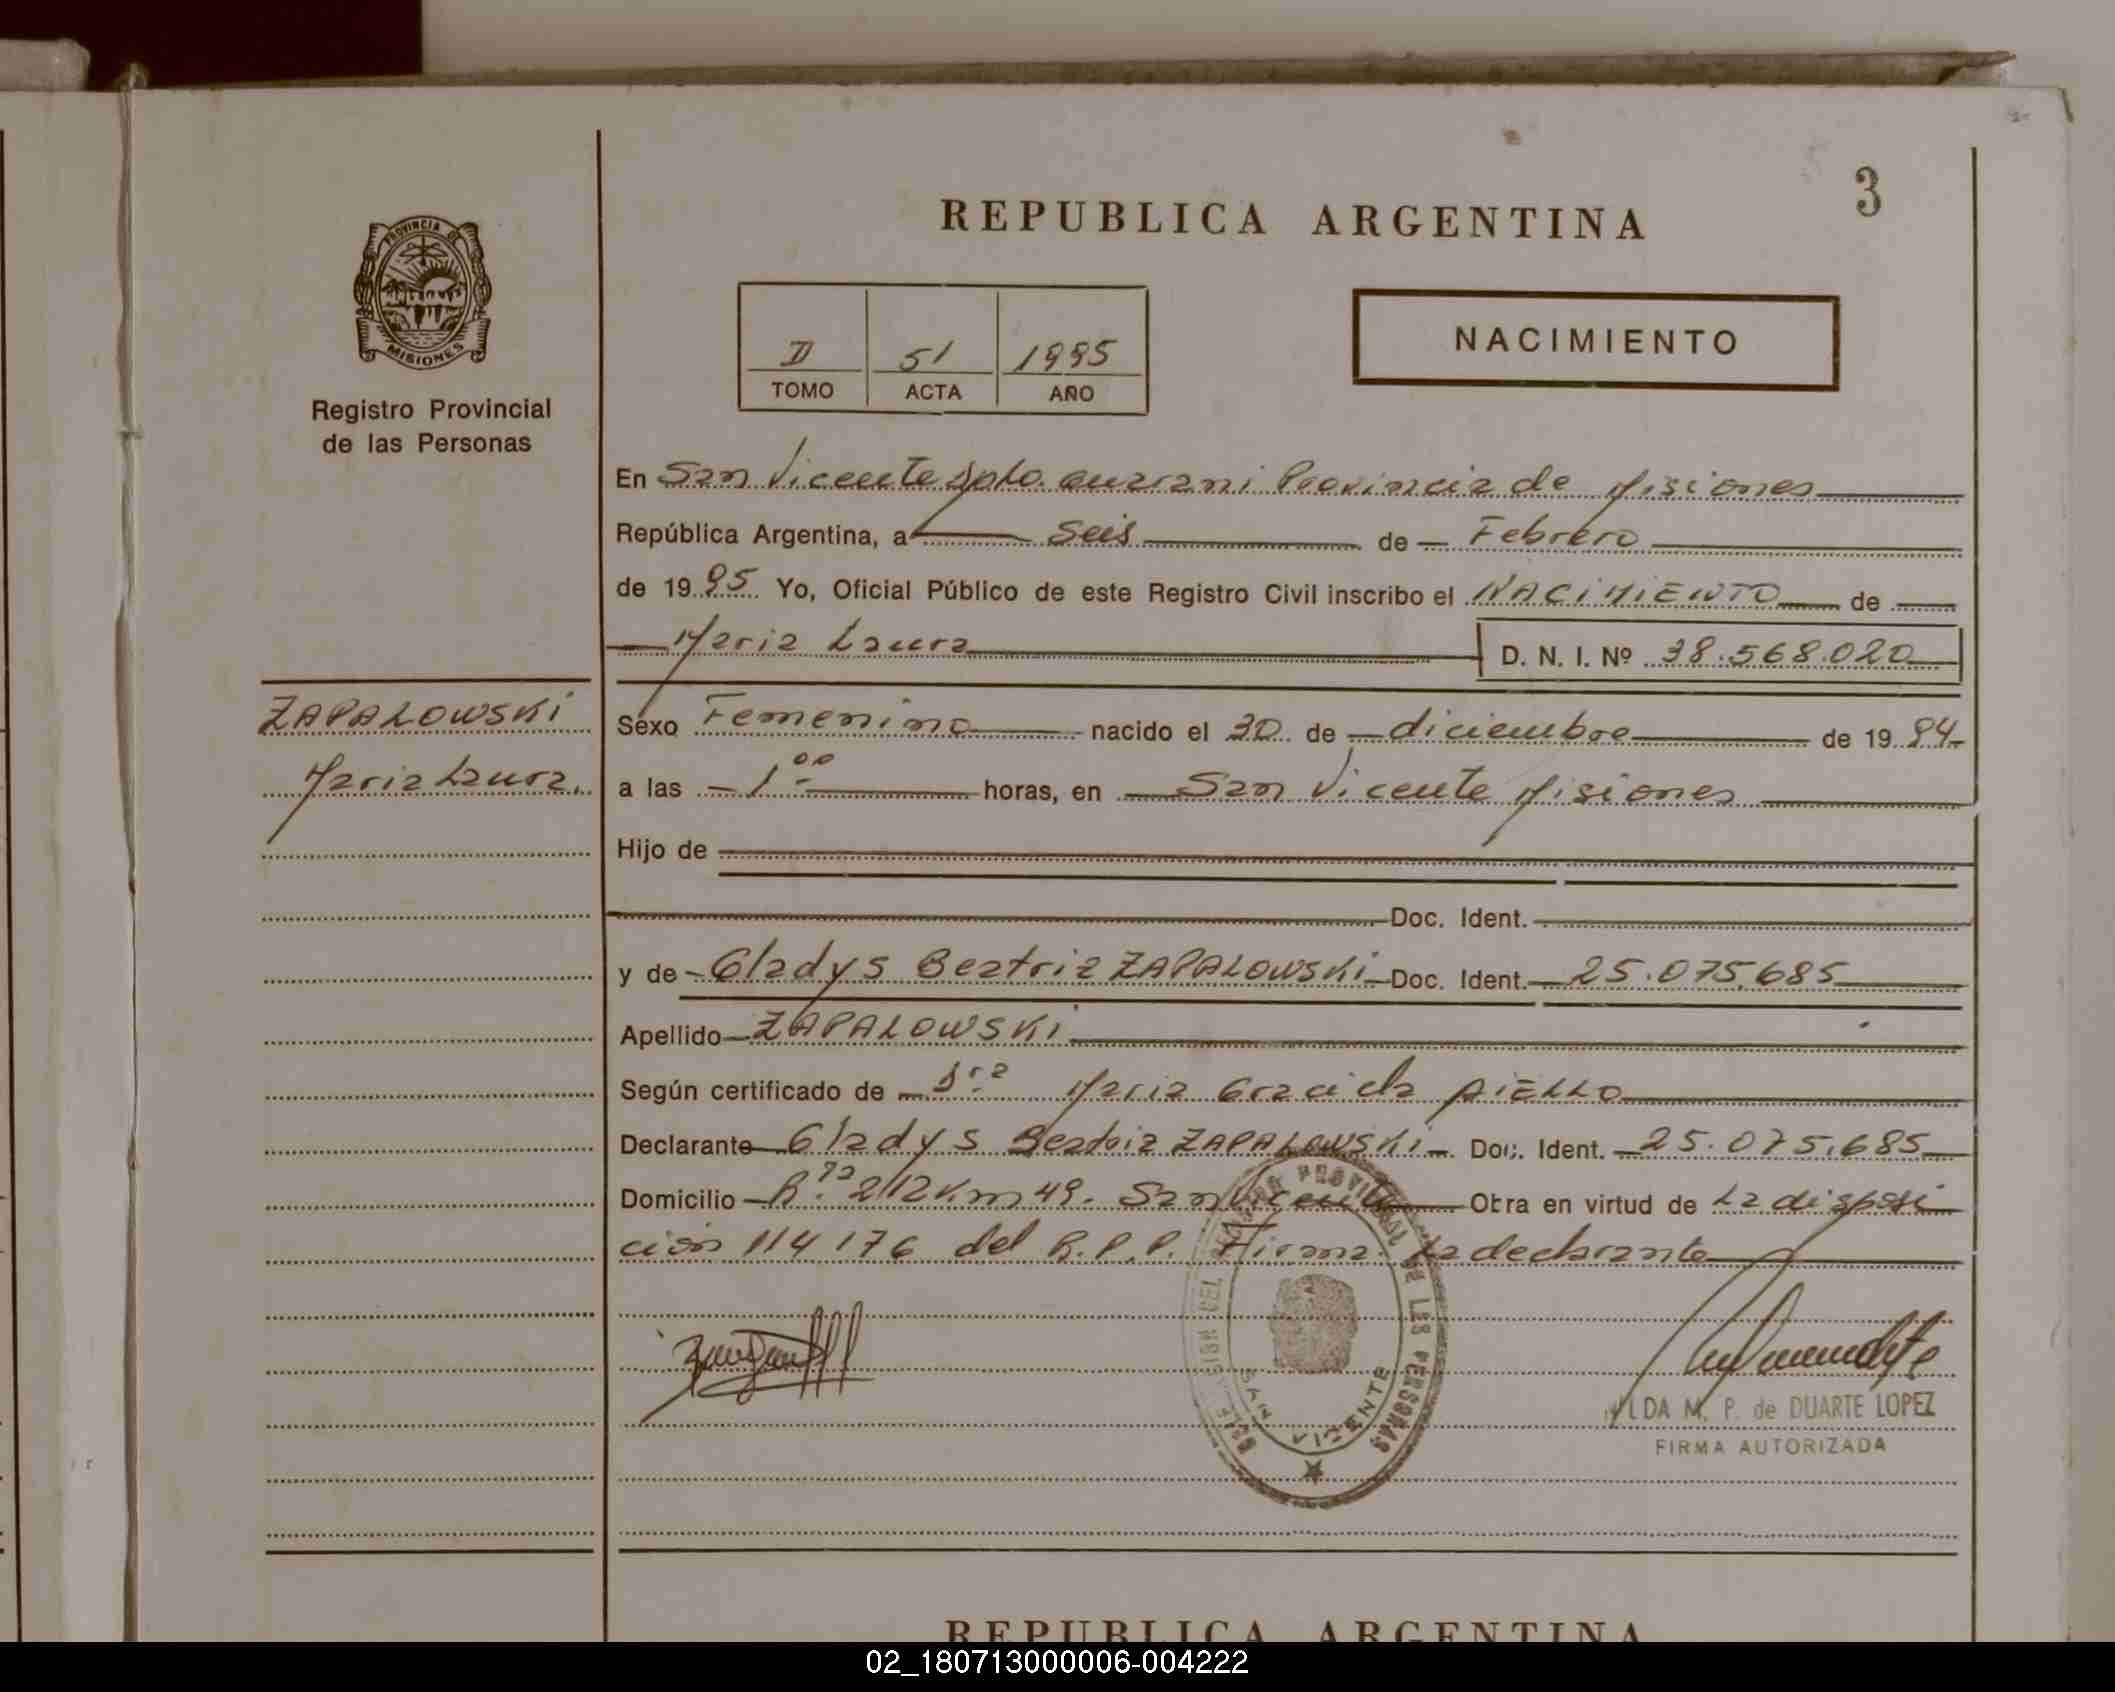 3
REPUBLICA ARGENTINA
PROVINCIA DE
MISIONES
Registro Provincial
de las Personas
D 51 1995
TOMO ACTA AÑO
NACIMIENTO
En San Vicente Dpto. Guarani Provincia de Misiones
República Argentina, a seis de Febrero
de 1995 Yo, Oficial Público de este Registro Civil inscribo el NACIMIENTO de
Maria Laura D. N. I. Nº 38.568.020
ZAPALOWSKI
Maria Laura.
Sexo Femenino nacido el 30 de diciembre de 1994
a las 1 00 horas, en San Vicente Misiones
Hijo de
Doc. Ident.
y de Gladys Beatriz ZAPALOWSKI Doc. Ident. 25.075.685
Apellido ZAPALOWSKI
Según certificado de Maria Graciela AIELLO
Declarante Gladys Beatriz ZAPALOWSKI Doc. Ident. 25.075.685
Domicilio R. 212 Km 49. San Vicente Otra en virtud de La disposi
ción 114176 del R.P.P. Firma: La declarante
REGISTRO PROVINCIAL DE LAS PERSONAS
SAN VICENTE
LDA M. P. de DUARTE LOPEZ
FIRMA AUTORIZADA
REPUBLICA ARGENTINA
02_180713000006-004222